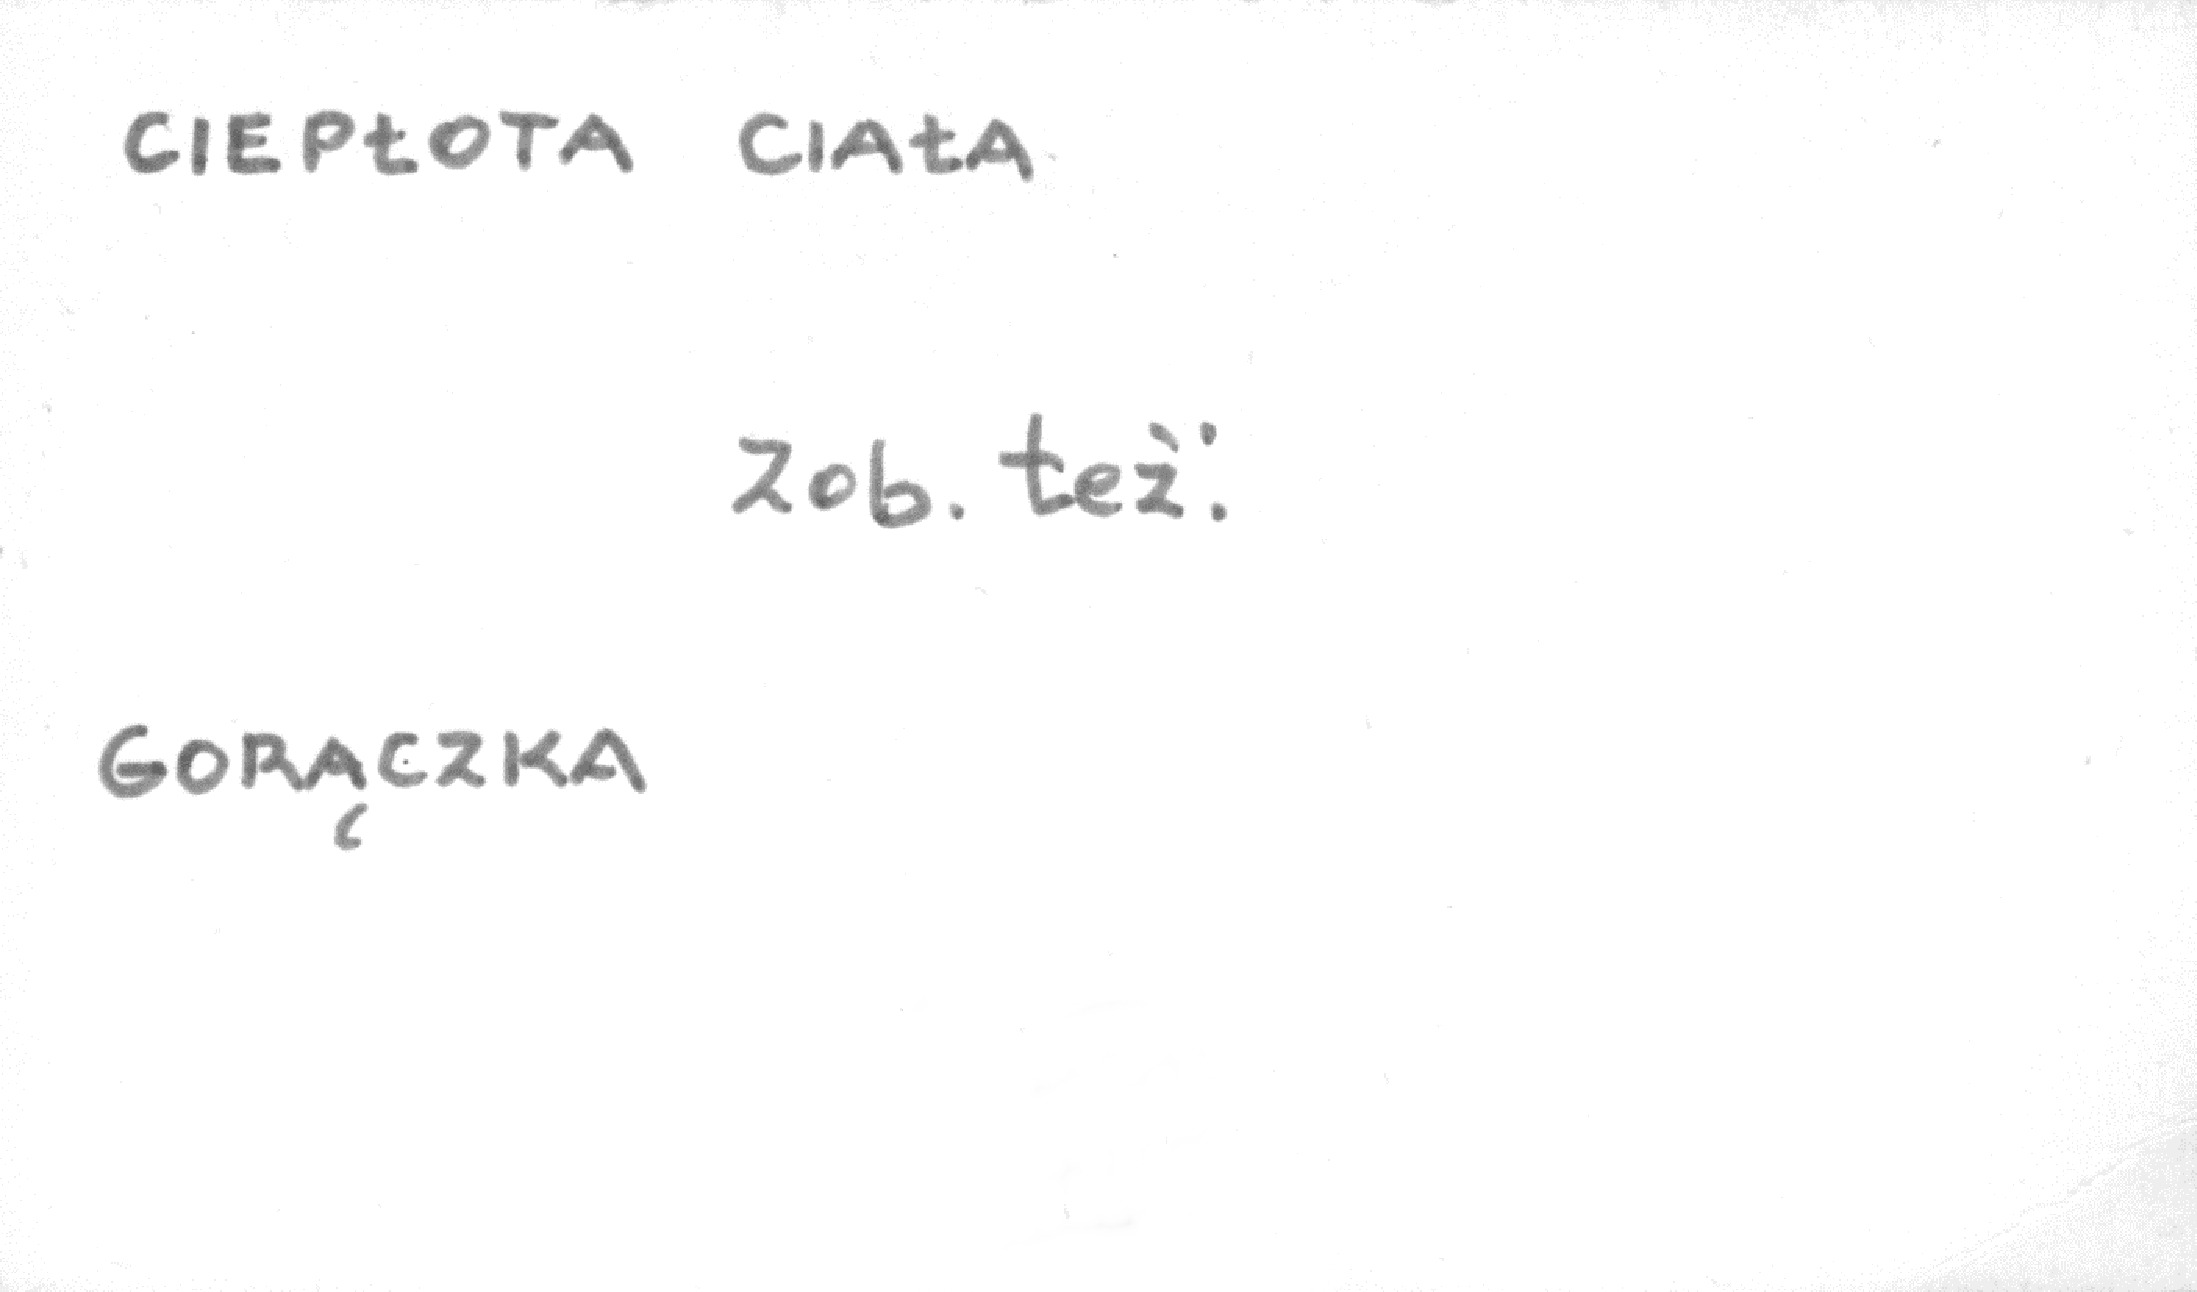 CIEPŁOTA CIAŁA
Zob. też:
GORĄCZKA